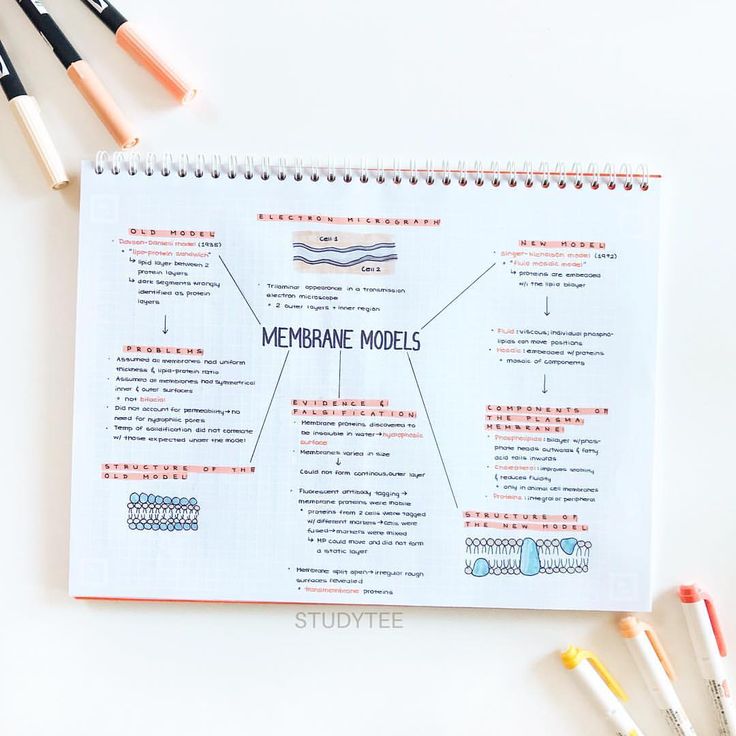 OLD MODEL
• Davson-Danielli model (1935)
• "lipo-protein sandwich"
↳ lipid layer between 2
protein layers
↳ dark segments wrongly
identified as protein
layers
PROBLEMS
• Assumed all membranes had uniform
thickness & lipid-protein ratio
• Assumed all membranes had symmetrical
inner & outer surfaces
• not bifacial
• Did not account for permeability → no
need for hydrophilic pores
• Temp of solidification did not correlate
w/ those expected under the model
STRUCTURE OF THE
OLD MODEL
ELECTRON MICROGRAPH
Cell 1
Cell 2
• Trilaminar appearance in a transmission
electron microscope
• 2 outer layers + inner region
MEMBRANE MODELS
EVIDENCE &
FALSIFICATION
• Membrane proteins discovered to
be insoluble in water → hydrophobic
surface
• Membranes varied in size
↓
Could not form continous, outer layer
• Fluorescent antibody tagging →
membrane proteins were mobile
• proteins from 2 cells were tagged
w/ different markers → cells were
fused → markers were mixed
↳ MP could move and did not form
a static layer
• Membrane split open → irregular rough
surfaces revealed
• transmembrane proteins
NEW MODEL
• Singer-Nicholson model (1972)
• "Fluid mosaic model"
↳ proteins are embedded
w/i the lipid bilayer
• Fluid: viscous; individual phospho-
lipids can move positions
• Mosaic: embedded w/ proteins
• mosaic of components
COMPONENTS OF
THE PLASMA
MEMBRANE
• Phospholipids: bilayer w/ phos-
phate heads outwards & fatty
acid tails inwards
• Cholesterol: improves stability
& reduces fluidity
• only in animal cell membranes
• Proteins: integral or peripheral
STRUCTURE OF
THE NEW MODEL
STUDYTEE